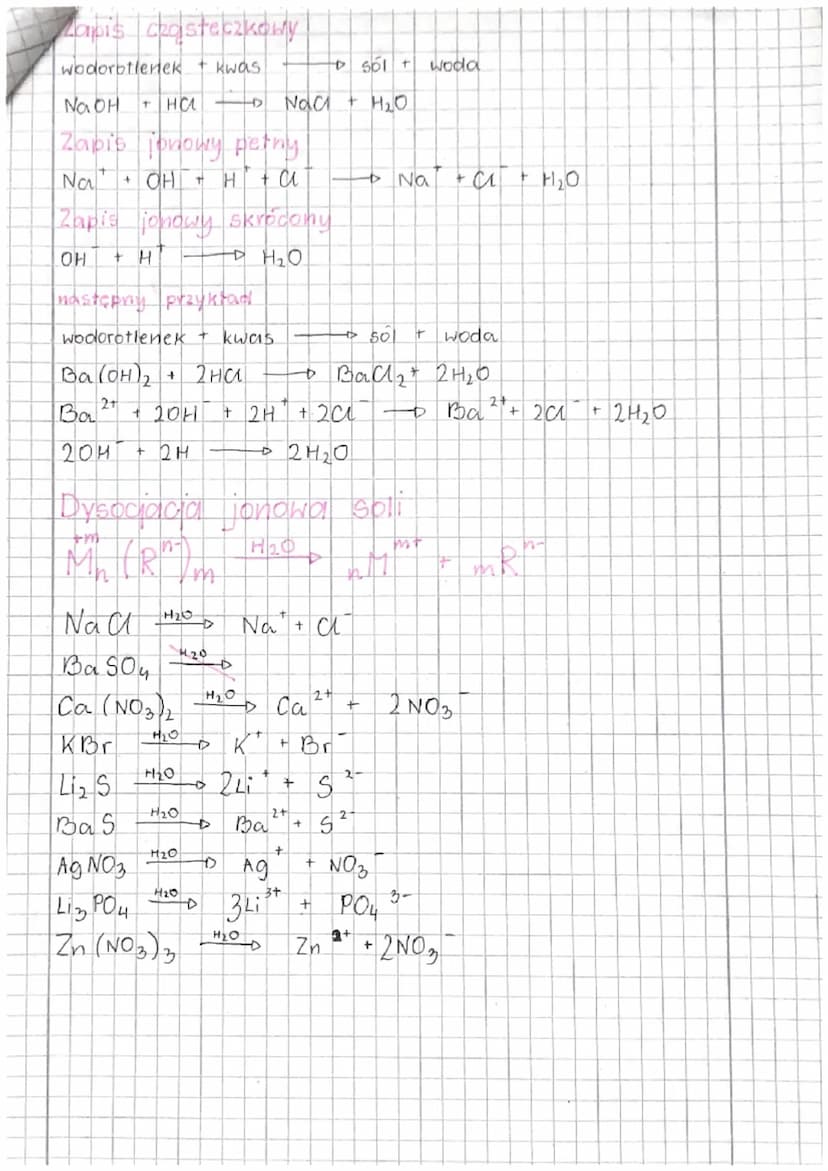 Zapis cząsteczkowy
wodorotlenek + kwas ⟶ sól + woda
NaOH + HCl ⟶ NaCl + H₂O
Zapis jonowy pełny
Na⁺ + OH⁻ + H⁺ + Cl⁻ ⟶ Na⁺ + Cl⁻ + H₂O
Zapis jonowy skrócony
OH⁻ + H⁺ ⟶ H₂O
następny przykład
wodorotlenek + kwas ⟶ sól + woda
Ba(OH)₂ + 2HCl ⟶ BaCl₂ + 2H₂O
Ba²⁺ + 2OH⁻ + 2H⁺ + 2Cl⁻ ⟶ Ba²⁺ + 2Cl⁻ + 2H₂O
2OH⁻ + 2H ⟶ 2H₂O
Dysocjacja jonowa soli
M⁺ᵐₙ(Rⁿ⁻)ₘ —H₂O→ nMᵐ⁺ + mRⁿ⁻
NaCl —H₂O→ Na⁺ + Cl⁻
BaSO₄ —H₂O→
Ca(NO₃)₂ —H₂O→ Ca²⁺ + 2NO₃⁻
KBr —H₂O→ K⁺ + Br⁻
Li₂S —H₂O→ 2Li⁺ + S²⁻
BaS —H₂O→ Ba²⁺ + S²⁻
AgNO₃ —H₂O→ Ag⁺ + NO₃⁻
Li₃PO₄ —H₂O→ 3Li³⁺ + PO₄³⁻
Zn(NO₃)₃ —H₂O→ Zn²⁺ + 2NO₃⁻